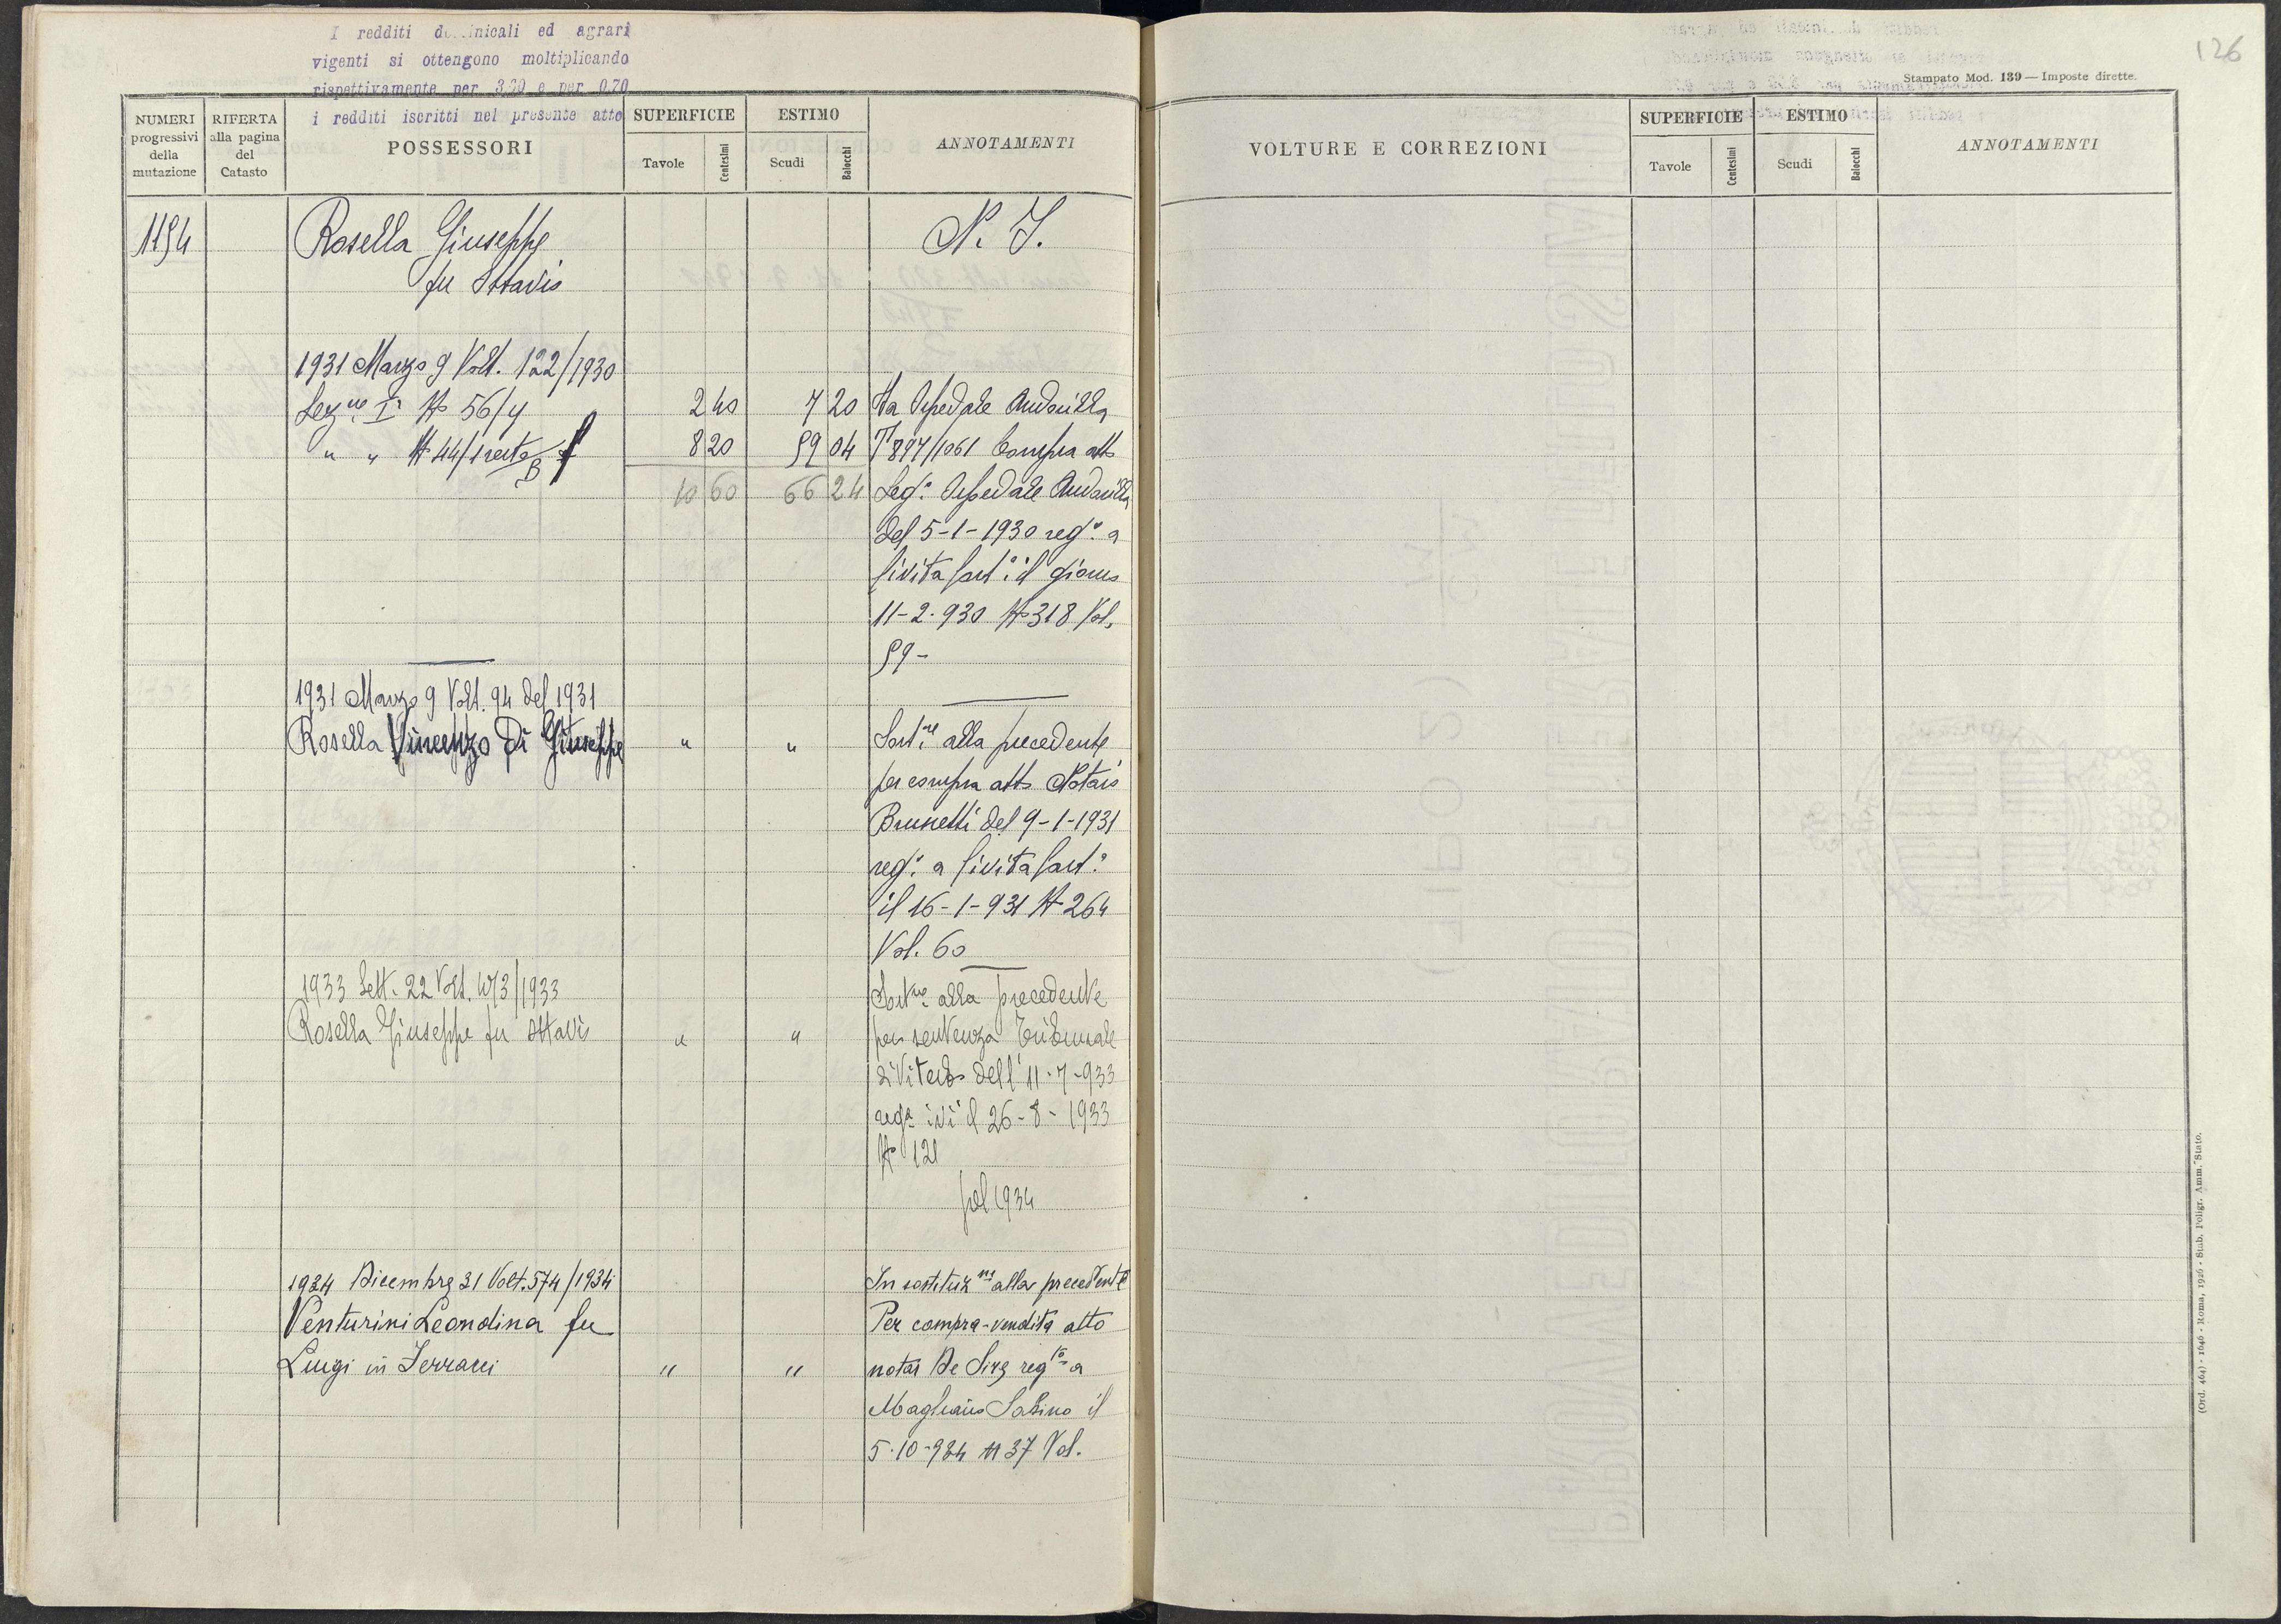 I redditi do..inicali ed agrari
vigenti si ottengono moltiplicando
rispettivamente per 3,60 e per 0,70
i redditi iscritti nel presente atto
NUMERI progressivi della mutazione
RIFERTA alla pagina del Catasto
POSSESSORI
SUPERFICIE
Tavole
Centesimi
ESTIMO
Scudi
Baiocchi
ANNOTAMENTI
1194
Rosella Giuseppe
fu Ottavio
N. I.
1931 Marzo 9 Volt. 122/1930
Sez.ne I.a N° 56/4 2 40 7 20 Da Ospedale Andosilla
" " N° 44/1 resto B 8 20 59 04 P 897/1061 Compra atto
10 60 66 24 Seg.o Ospedale Andosilla
del 5-1-1930 reg.o a
Civita Cast.a il giorno
11-2-930 N° 318 Vol.
59-
1931 Marzo 9 Volt. 94 del 1931
Rosella Vincenzo di Giuseppe " " Sost.ne alla precedente
per compra atto Notaio
Brunetti del 9-1-1931
reg.o a Civita Cast.a
il 16-1-931 N° 264
Vol. 60
1933 Sett. 22 Volt. 403/1933
Rosella Giuseppe fu Ottavio " "
Sost.ne alla precedente
per sentenza Tribunale
di Viterbo dell' 11-7-933
reg.a ivi il 26-8-1933
N° 121
pel 1934
1934 Dicembre 31 Volt. 574/1934
Venturini Leondina fu
Luigi in Ferracci " "
In sostituz.ne alla precedente
Per compra-vendita atto
notar De Sire reg.to a
Magliano Sabino il
5-10-934 N 37 Vol.
126
Stampato Mod. 139 — Imposte dirette.
VOLTURE E CORREZIONI
SUPERFICIE
Tavole
Centesimi
ESTIMO
Scudi
Baiocchi
ANNOTAMENTI
(Ord. 464) - 1646 - Roma, 1926 - Stab. Poligr. Amm. Stato.